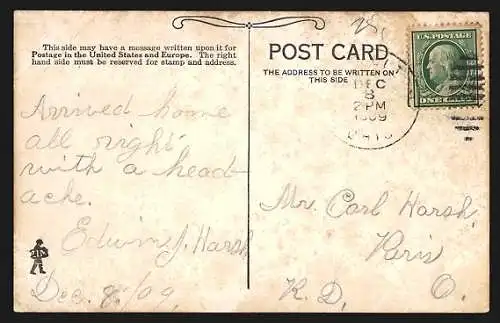 This side may have a message written upon it for
Postage in the United States and Europe. The right
hand side must be reserved for stamp and address.
Arrived home
all right
with a head-
ache.
Edwin J. Harsh
Dec. 8/09
POST CARD
THE ADDRESS TO BE WRITTEN ON
THIS SIDE
DEC
8
2 PM
1909
OHIO
U.S. POSTAGE
ONE CENT
Mr. Carl Harsh,
Paris
R.D. O.